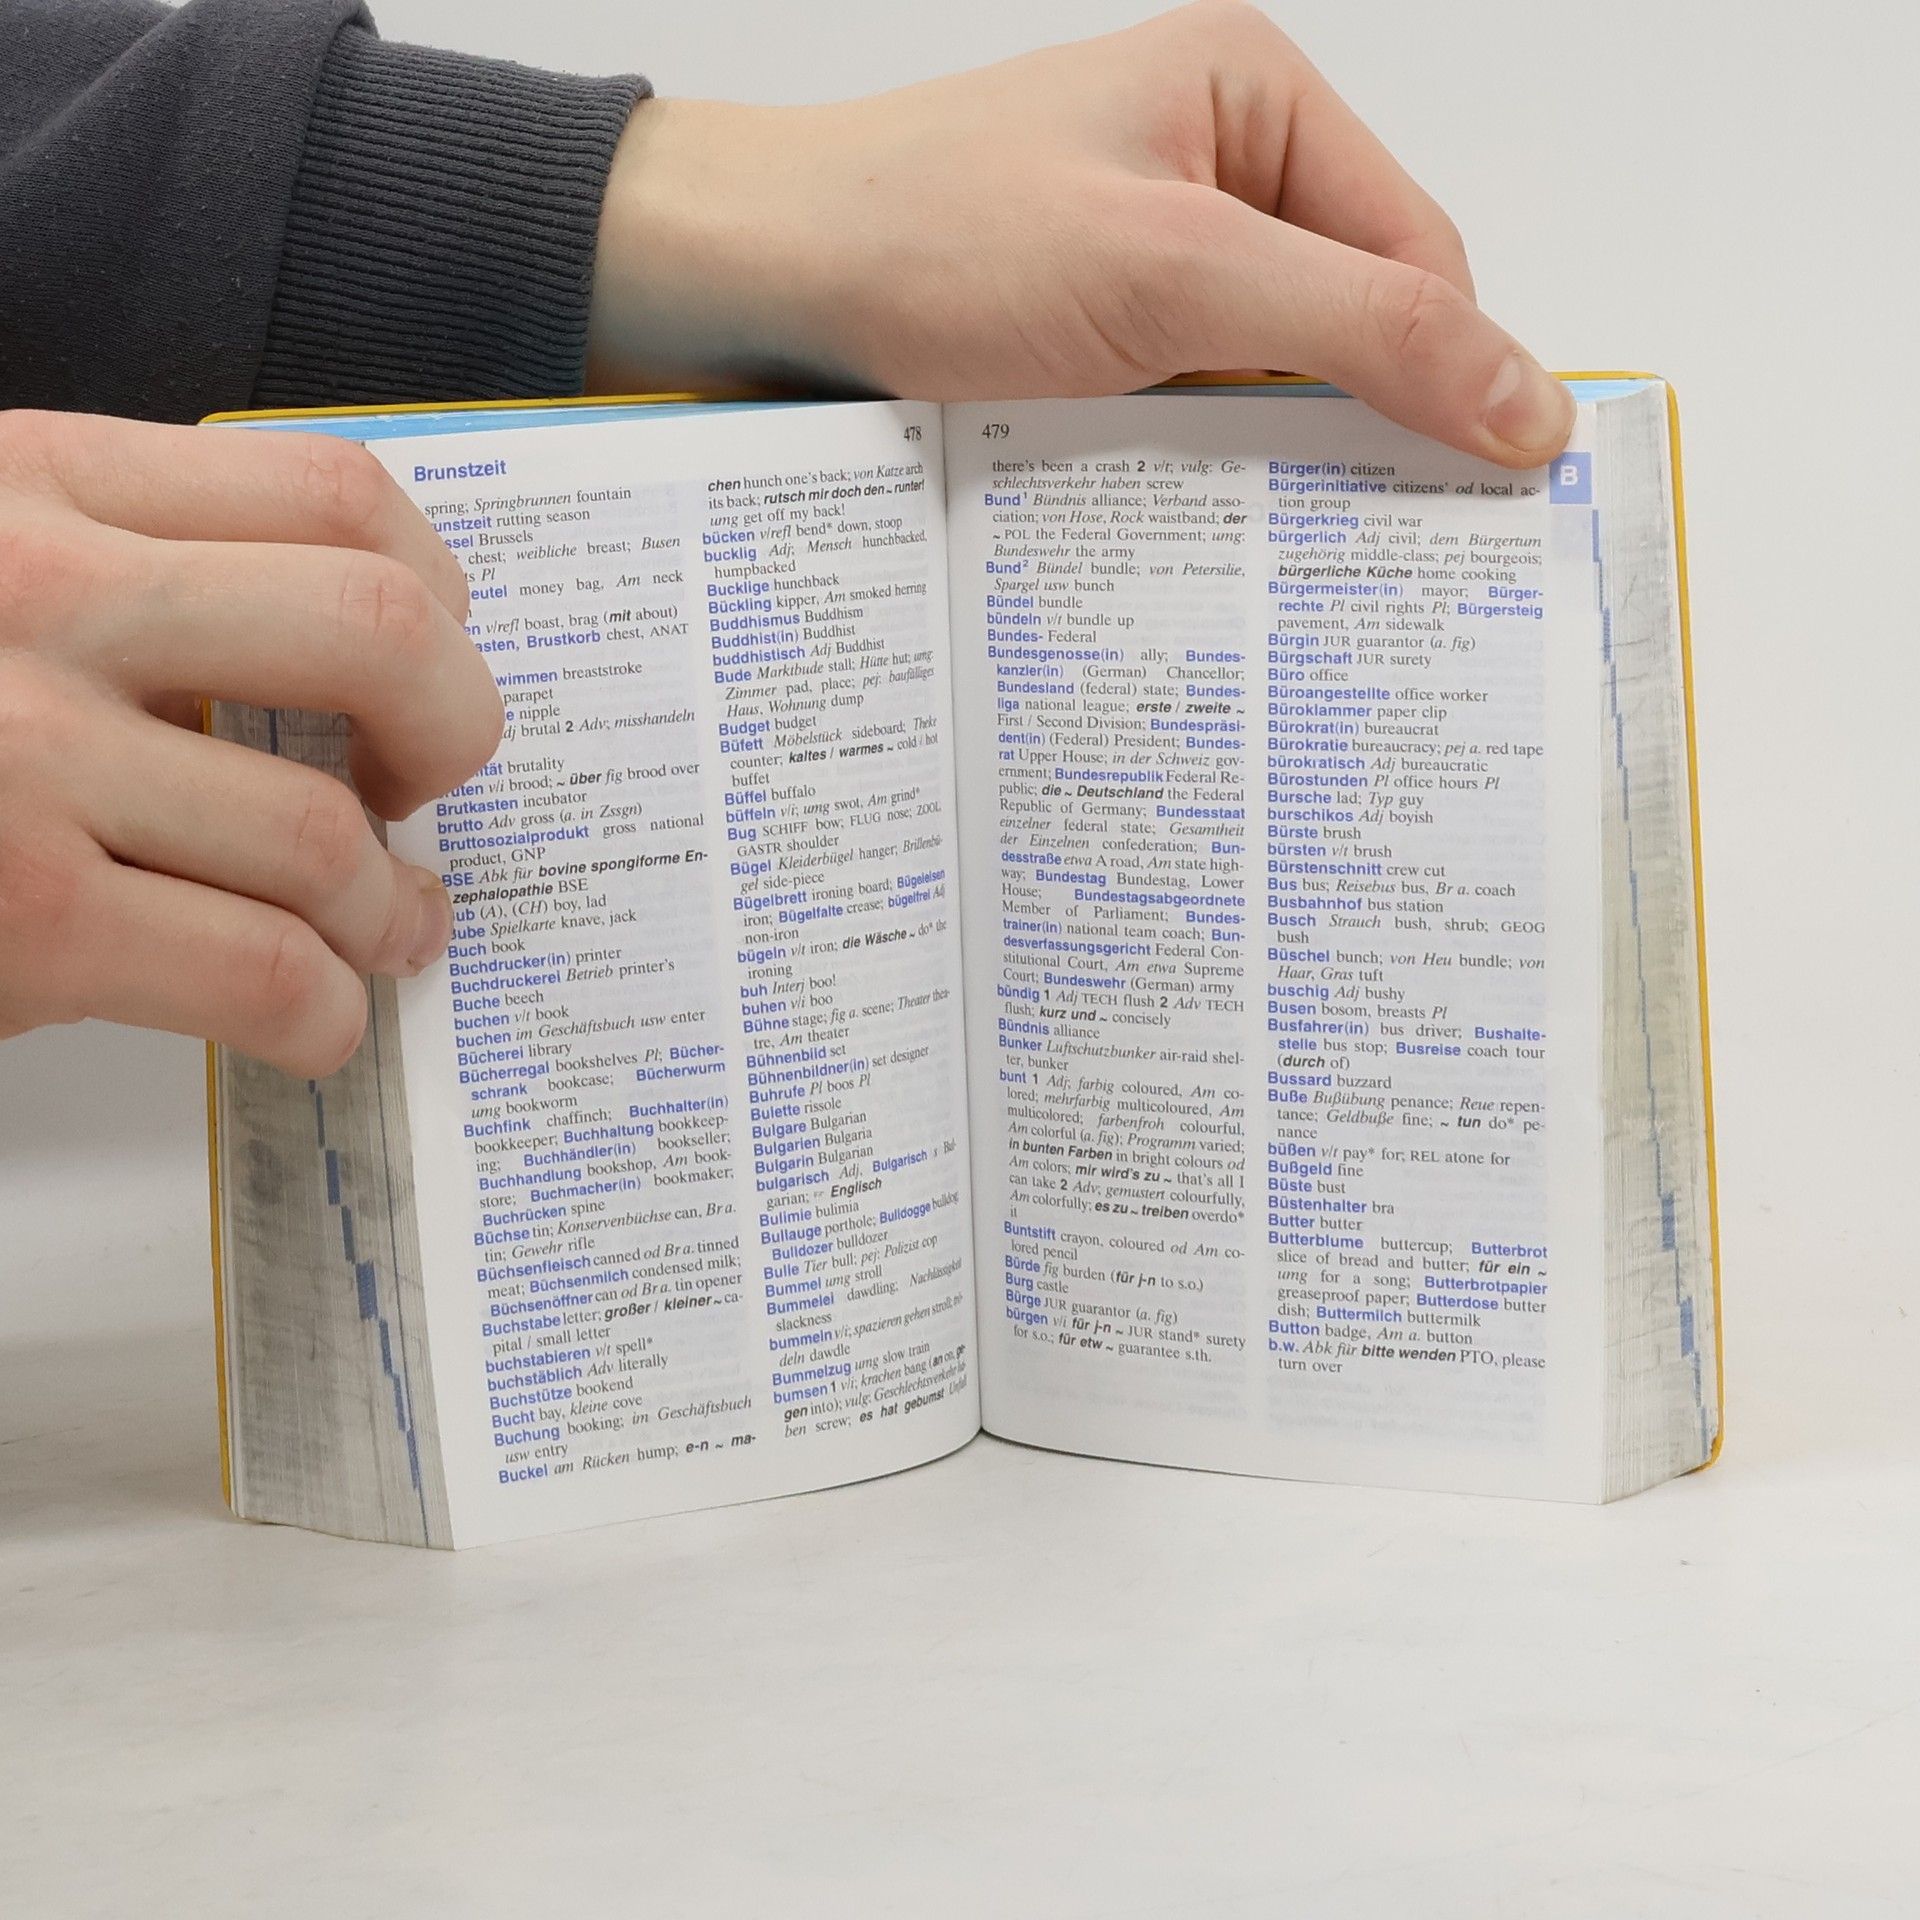 478
Brunstzeit
spring; Springbrunnen fountain
unstzeit rutting season
ssel Brussels
chest; weibliche breast; Busen
ts Pl
eutel money bag, Am neck
en v/refl boast, brag (mit about)
asten, Brustkorb chest, ANAT
wimmen breaststroke
parapet
e nipple
dj brutal 2 Adv; misshandeln
ität brutality
ruten v/i brood; ~ über fig brood over
Brutkasten incubator
brutto Adv gross (a. in Zssgn)
Bruttosozialprodukt gross national
product, GNP
BSE Abk für bovine spongiforme En-
zephalopathie BSE
ub (A), (CH) boy, lad
Bube Spielkarte knave, jack
Buch book
Buchdrucker(in) printer
Buchdruckerei Betrieb printer's
Buche beech
buchen v/t book
buchen im Geschäftsbuch usw enter
Bücherei library
Bücherregal bookshelves Pl; Bücher-
schrank bookcase; Bücherwurm
umg bookworm
Buchfink chaffinch; Buchhalter(in)
bookkeeper; Buchhaltung bookkeep-
ing; Buchhändler(in) bookseller;
Buchhandlung bookshop, Am book-
store; Buchmacher(in) bookmaker;
Buchrücken spine
Büchse tin; Konservenbüchse can, Br a.
tin; Gewehr rifle
Büchsenfleisch canned od Br a. tinned
meat; Büchsenmilch condensed milk;
Büchsenöffner can od Br a. tin opener
Buchstabe letter; großer / kleiner ~ ca-
pital / small letter
buchstabieren v/t spell*
buchstäblich Adv literally
Buchstütze bookend
Bucht bay, kleine cove
Buchung booking; im Geschäftsbuch
usw entry
Buckel am Rücken hump; e-n ~ ma-
chen hunch one's back; von Katze arch
its back; rutsch mir doch den ~ runter!
umg get off my back!
bücken v/refl bend* down, stoop
bucklig Adj; Mensch hunchbacked,
humpbacked
Bucklige hunchback
Bückling kipper, Am smoked herring
Buddhismus Buddhism
Buddhist(in) Buddhist
buddhistisch Adj Buddhist
Bude Marktbude stall; Hütte hut; umg:
Zimmer pad, place; pej: baufälliges
Haus, Wohnung dump
Budget budget
Büfett Möbelstück sideboard; Theke
counter; kaltes / warmes ~ cold / hot
buffet
Büffel buffalo
büffeln v/i; umg swot, Am grind*
Bug SCHIFF bow; FLUG nose; ZOOL
GASTR shoulder
Bügel Kleiderbügel hanger; Brillenbü-
gel side-piece
Bügelbrett ironing board; Bügeleisen
iron; Bügelfalte crease; bügelfrei Adj
non-iron
bügeln v/t iron; die Wäsche ~ do* the
ironing
buh Interj boo!
buhen v/i boo
Bühne stage; fig a. scene; Theater thea-
tre, Am theater
Bühnenbild set
Bühnenbildner(in) set designer
Buhrufe Pl boos Pl
Bulette rissole
Bulgare Bulgarian
Bulgarien Bulgaria
Bulgarin Bulgarian
bulgarisch Adj, Bulgarisch s Bul-
garian; Englisch
Bulimie bulimia
Bullauge porthole; Bulldogge bulldog
Bulldozer bulldozer
Bulle Tier bull; pej: Polizist cop
Bummel umg stroll
Bummelei dawdling; Nachlässigkeit
slackness
bummeln v/i; spazieren gehen stroll; trö-
deln dawdle
Bummelzug umg slow train
bumsen 1 v/i; krachen bang (an on, ge-
gen into); vulg: Geschlechtsverkehr ha-
ben screw; es hat gebumst Unfall
479
there's been a crash 2 v/t; vulg: Ge-
schlechtsverkehr haben screw
Bund¹ Bündnis alliance; Verband asso-
ciation; von Hose, Rock waistband; der
~ POL the Federal Government; umg:
Bundeswehr the army
Bund² Bündel bundle; von Petersilie,
Spargel usw bunch
Bündel bundle
bündeln v/t bundle up
Bundes- Federal
Bundesgenosse(in) ally; Bundes-
kanzler(in) (German) Chancellor;
Bundesland (federal) state; Bundes-
liga national league; erste / zweite ~
First / Second Division; Bundespräsi-
dent(in) (Federal) President; Bundes-
rat Upper House; in der Schweiz gov-
ernment; Bundesrepublik Federal Re-
public; die ~ Deutschland the Federal
Republic of Germany; Bundesstaat
einzelner federal state; Gesamtheit
der Einzelnen confederation; Bun-
desstraße etwa A road, Am state high-
way; Bundestag Bundestag, Lower
House; Bundestagsabgeordnete
Member of Parliament; Bundes-
trainer(in) national team coach; Bun-
desverfassungsgericht Federal Con-
stitutional Court, Am etwa Supreme
Court; Bundeswehr (German) army
bündig 1 Adj TECH flush 2 Adv TECH
flush; kurz und ~ concisely
Bündnis alliance
Bunker Luftschutzbunker air-raid shel-
ter, bunker
bunt 1 Adj; farbig coloured, Am co-
lored; mehrfarbig multicoloured, Am
multicolored; farbenfroh colourful,
Am colorful (a. fig); Programm varied;
in bunten Farben in bright colours od
Am colors; mir wird's zu ~ that's all I
can take 2 Adv; gemustert colourfully,
Am colorfully; es zu ~ treiben overdo*
it
Buntstift crayon, coloured od Am co-
lored pencil
Bürde fig burden (für j-n to s.o.)
Burg castle
Bürge JUR guarantor (a. fig)
bürgen v/i für j-n ~ JUR stand* surety
for s.o.; für etw ~ guarantee s.th.
Bürger(in) citizen
Bürgerinitiative citizens' od local ac-
tion group
Bürgerkrieg civil war
bürgerlich Adj civil; dem Bürgertum
zugehörig middle-class; pej bourgeois;
bürgerliche Küche home cooking
Bürgermeister(in) mayor; Bürger-
rechte Pl civil rights Pl; Bürgersteig
pavement, Am sidewalk
Bürgin JUR guarantor (a. fig)
Bürgschaft JUR surety
Büro office
Büroangestellte office worker
Büroklammer paper clip
Bürokrat(in) bureaucrat
Bürokratie bureaucracy; pej a. red tape
bürokratisch Adj bureaucratic
Bürostunden Pl office hours Pl
Bursche lad; Typ guy
burschikos Adj boyish
Bürste brush
bürsten v/t brush
Bürstenschnitt crew cut
Bus bus; Reisebus bus, Br a. coach
Busbahnhof bus station
Busch Strauch bush, shrub; GEOG
bush
Büschel bunch; von Heu bundle; von
Haar, Gras tuft
buschig Adj bushy
Busen bosom, breasts Pl
Busfahrer(in) bus driver; Bushalte-
stelle bus stop; Busreise coach tour
(durch of)
Bussard buzzard
Buße Bußübung penance; Reue repen-
tance; Geldbuße fine; ~ tun do* pe-
nance
büßen v/t pay* for; REL atone for
Bußgeld fine
Büste bust
Büstenhalter bra
Butter butter
Butterblume buttercup; Butterbrot
slice of bread and butter; für ein ~
umg for a song; Butterbrotpapier
greaseproof paper; Butterdose butter
dish; Buttermilch buttermilk
Button badge, Am a. button
b.w. Abk für bitte wenden PTO, please
turn over
B